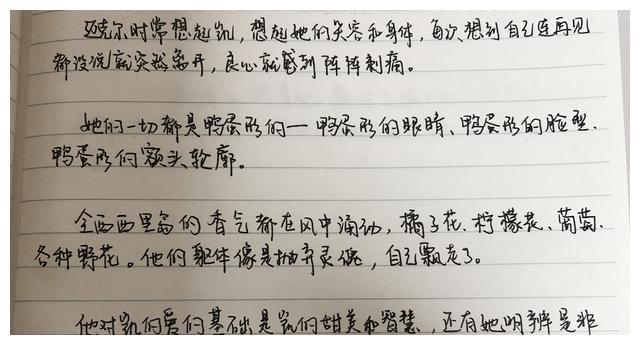 迈克尔时常想起凯，想起她的笑容和身体，每次想到自己连再见
都没说就突然离开，良心就感到阵阵刺痛。
她的一切都是鸭蛋形的一鸭蛋形的眼睛、鸭蛋形的脸型.
鸭蛋形的额头轮廓。
全西西里岛的香气都在风中涌动，橘子花、柠檬花、葡萄.
各种野花。他们的躯体像是抛弃灵魂，自己飘走了。
他对凯的爱的基础是凯的甜美和智慧，还有她明辨是非